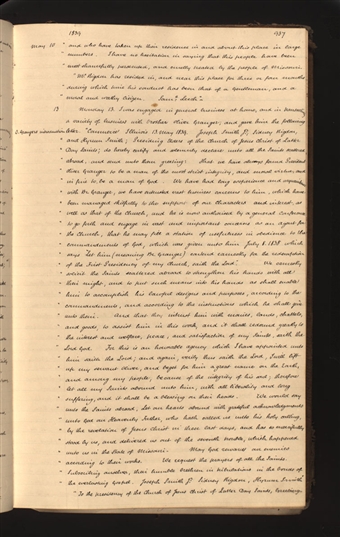 1839 937
May 10 " and who have taken up their residence in and about this place in large
" numbers. I have no hesitation in saying that this people have been
" most shamefully persecuted, and cruelly treated by the people of Missouri.
" Mr Rigdon has resided in, and near this place for three or four months
" during which time his conduct has been that of a Gentleman, and a
" moral and worthy citizen.
13 Monday 13. I was engaged in general business at home, and in
a variety of business with brother Oliver Granger; and gave him the following
O. Granger's letter. "Commerce Illinois 13 May 1839. Joseph Smith Jr, Sidney Rigdon,
" and Hyrum Smith; Presiding Elders of the Church of Jesus Christ of Latter
" Day Saints; do hereby certify and solemnly declare unto all the Saints scattered
" abroad, and send unto them greeting: That we have always found President
" Oliver Granger to be a man of the most strict integrity, and moral virtue; and
" in fine to be a man of God. We have had long experience and acquaintance
" with Br Granger, we have entrusted vast business concerns to him, which have
" been managed skilfully to the support of our characters and interest, as
" well as that of the Church; and he is now authorized by a general conference
" to go forth and engage in vast and important concerns as an agent for
" the Church, that he may fill a station of usefulness in obedience to the
" commandment of God, which was given unto him July 8, 1838 which
" says "Let him (meaning Br Granger) contend earnestly for the redemption
" of the First Presidency of my Church, saith the Lord." We earnestly
" solicit the Saints scattered abroad to strengthen his hands with all
" their might, and to put such means into his hands as shall enable
" him to accomplish his lawful designs and purposes, according to the
" commandments, and according to the instructions which he shall give
" unto them. And that they entrust him with moneys, lands, chattels,
" and goods, to assist him in this work; and it shall redound greatly to
" the interest and welfare, peace, and satisfaction of my Saints, saith the
" Lord God. For this is an honorable agency which I have appointed unto
" him saith the Lord; and again, verily thus saith the Lord, I will lift
" up my servant Oliver, and beget for him a great name on the earth,
" and among my people, because of the integrity of his soul; therefore
" let all my Saints abound unto him, with all liberality and long
" suffering, and it shall be a blessing on their heads. We would say
" unto the Saints abroad, let our hearts abound with grateful acknowledgments
" unto God our Heavenly Father, who hath called us unto his holy calling
" by the revelation of Jesus Christ in these last days, and has so mercifully
" stood by us, and delivered us out of the seventh trouble, which happened
" unto us in the State of Missouri. May God reward our enemies
" according to their works. We request the prayers of all the Saints,
" subscribing ourselves, their humble brethren in tribulations in the bonds of
" the everlasting Gospel. Joseph Smith Jr Sidney Rigdon, Hyrum Smith
" To the Presidency of the Church of Jesus Christ of Latter Day Saints, Greeting